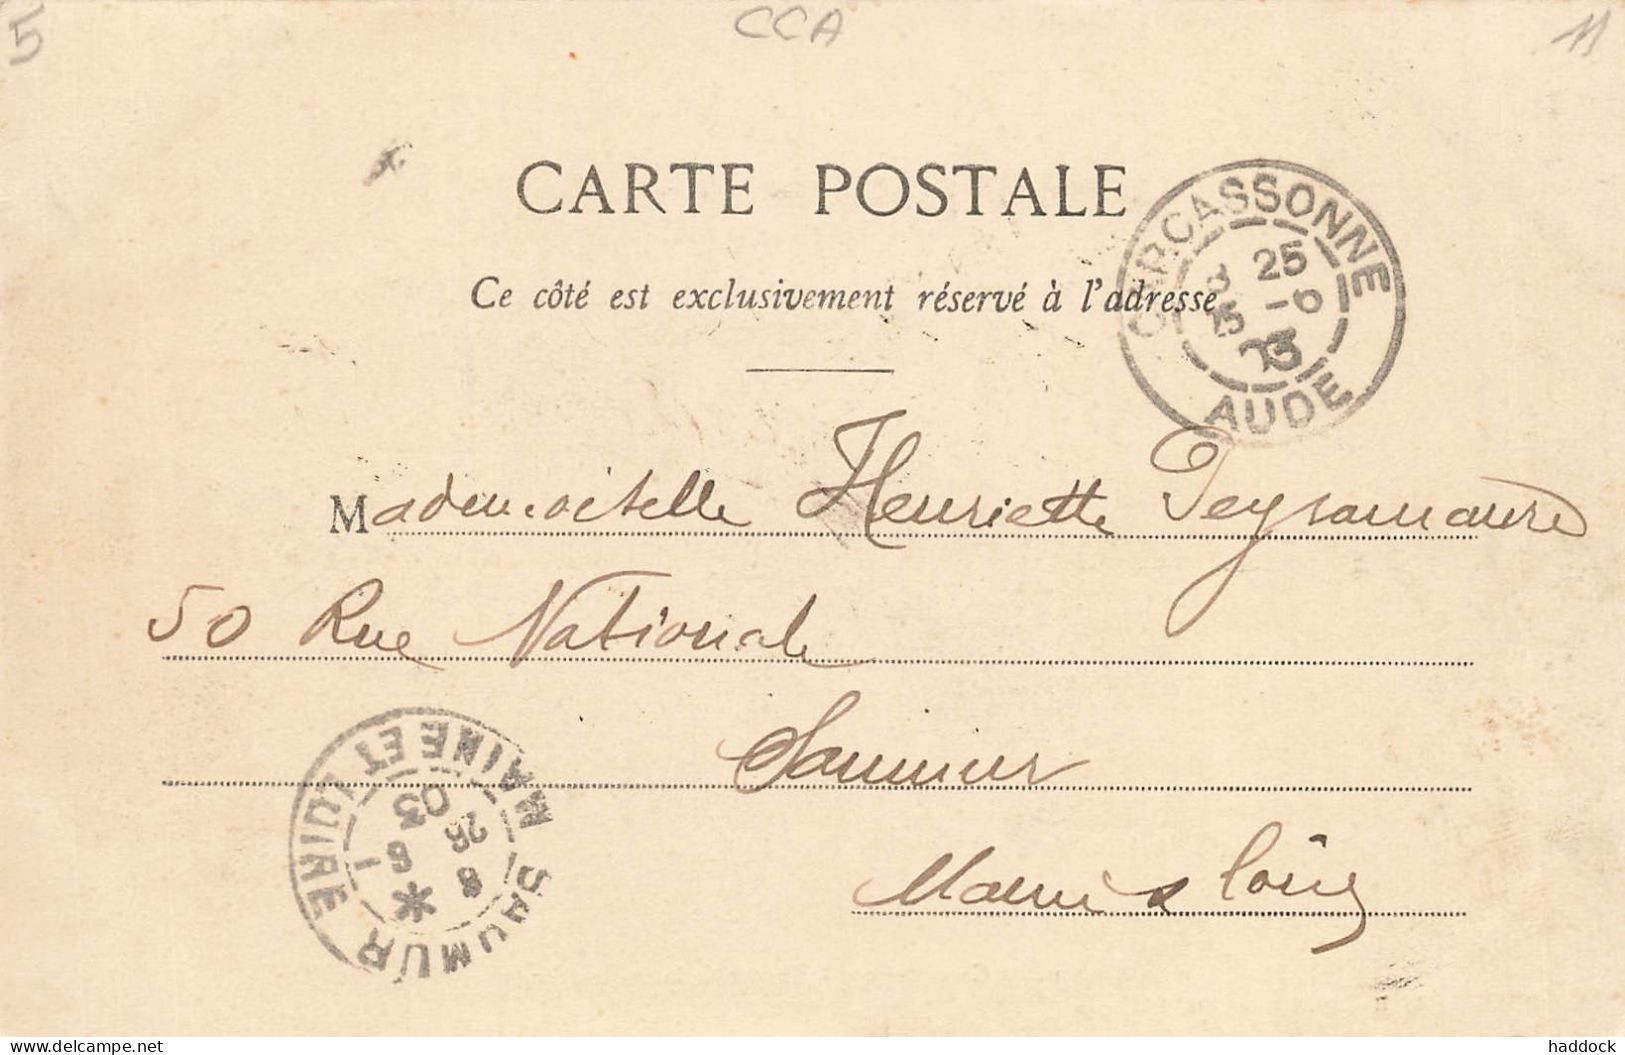 5
CCA
11
CARTE POSTALE
Ce côté est exclusivement réservé à l'adresse
CARCASSONNE
25
-6
03
AUDE
Mademoiselle Henriette
50 Rue Nationale
Saumur
Maine & Loire
MAINE ET LOIRE
8
26
6
03
SAUMUR
delcampe.net
haddock